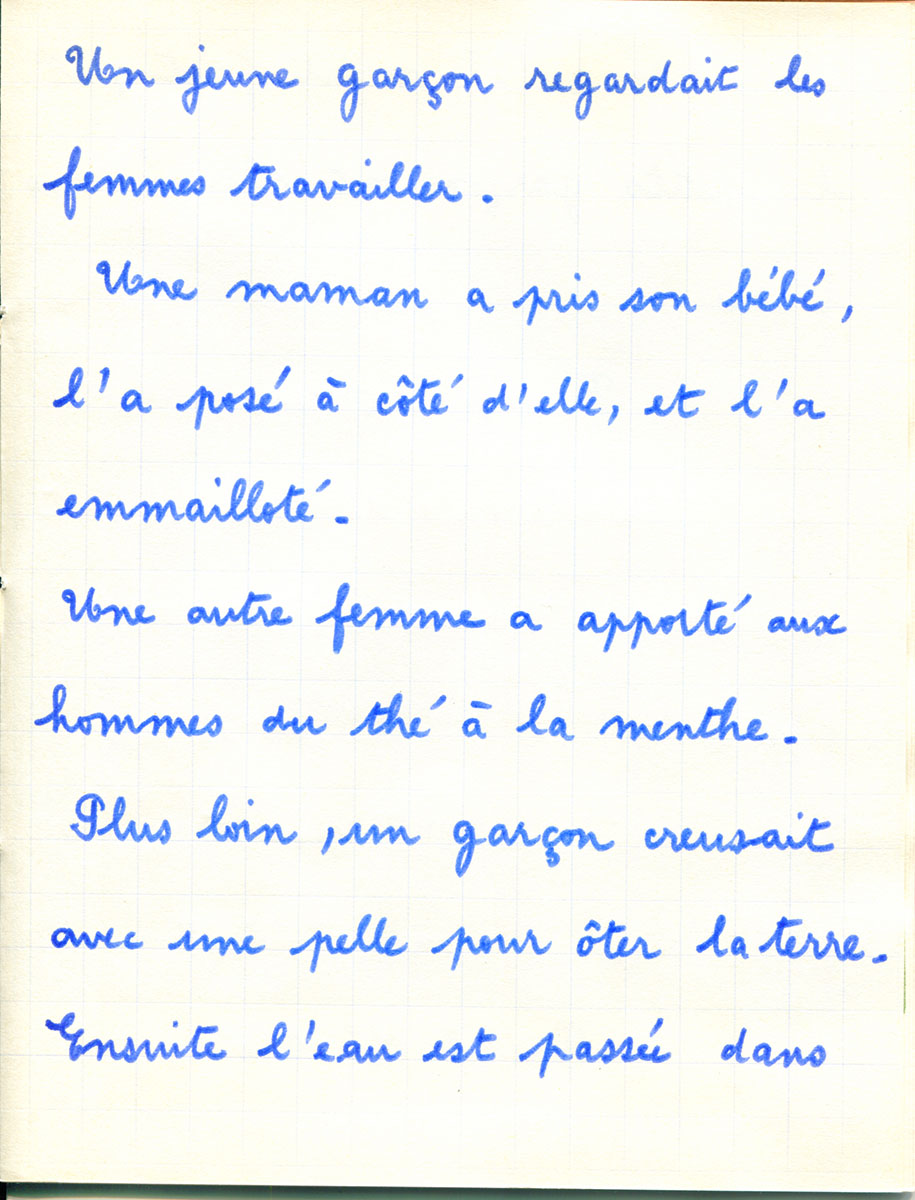 Un jeune garçon regardait les
femmes travailler.
Une maman a pris son bébé,
l'a posé à côté d'elle, et l'a
emmailloté.
Une autre femme a apporté aux
hommes du thé à la menthe.
Plus loin, un garçon creusait
avec une pelle pour ôter la terre.
Ensuite l'eau est passée dans